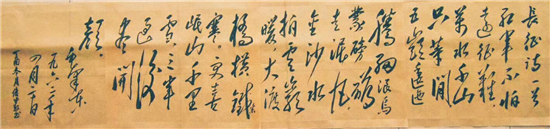 长征诗一首
红军不怕
远征难
万水千山
只等闲
五岭逶迤
腾细浪乌
蒙磅礴
走泥丸
金沙水
拍云崖
暖大渡
桥横铁
索寒更喜
岷山千里
雪三军
过后
尽开
颜
毛泽东
一九六二年
四月二十日
丁酉冬月